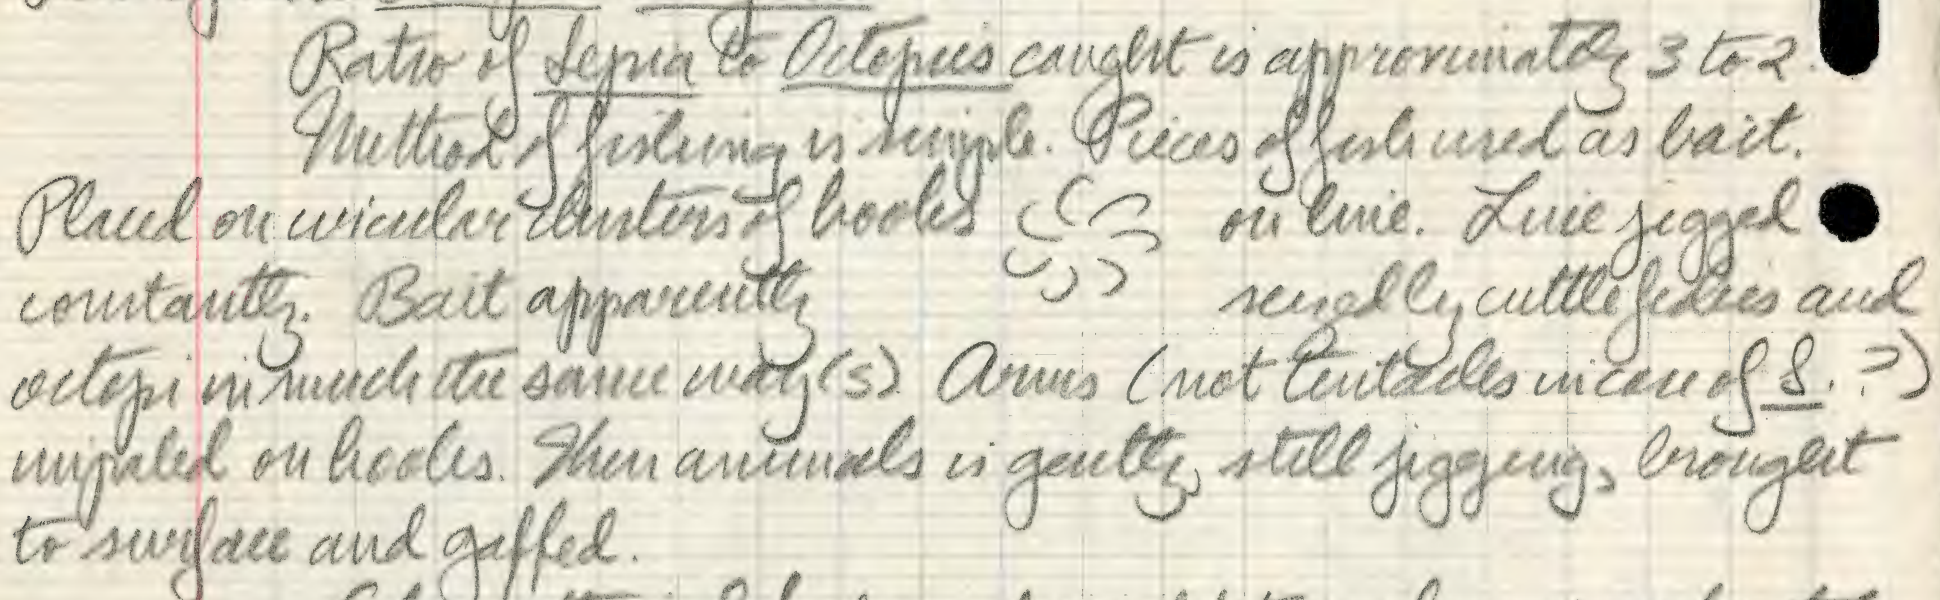 Ratio of Sepia to Octopus caught is approximately 3 to 2.
Method of fishing is simple. Pieces of fish used as bait.
Placed on circular clusters of hooks on line. Line jigged
constantly. Bait apparently cuttlefishes and
octopi in much the same way(s). Arms (not tentacles in case of S. ?)
impaled on hooks. Then animals is gently, still jigging, brought
to surface and gaffed.